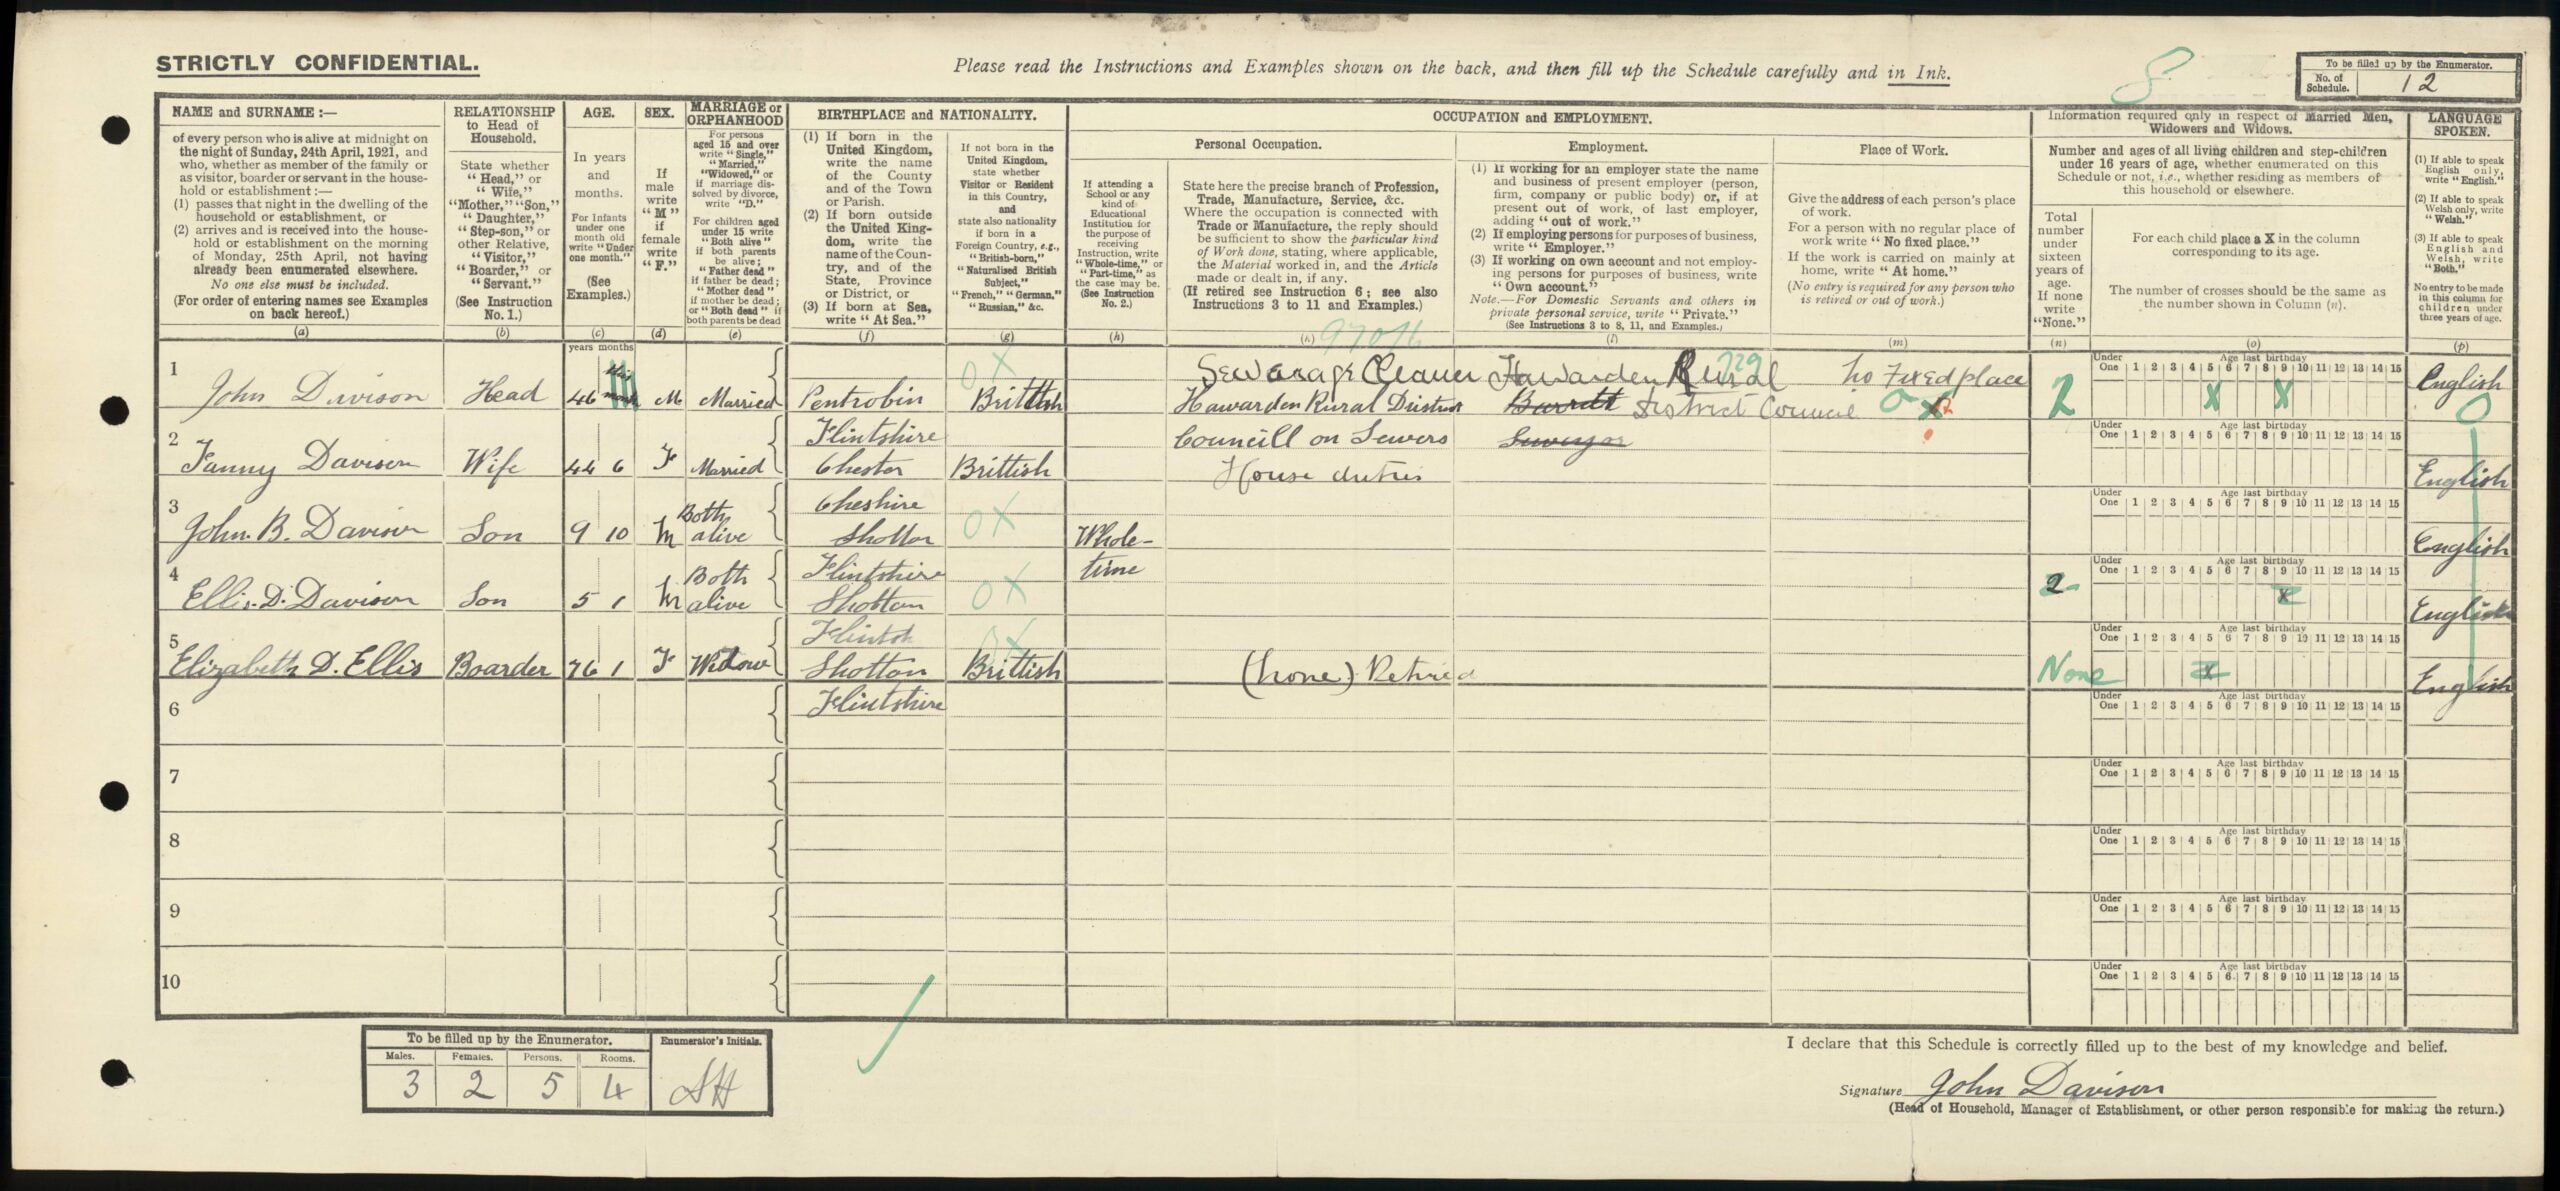 STRICTLY CONFIDENTIAL.
Please read the Instructions and Examples shown on the back, and then fill up the Schedule carefully and in Ink.
8
To be filled up by the Enumerator.
No. of Schedule. 12
NAME and SURNAME :—
of every person who is alive at midnight on
the night of Sunday, 24th April, 1921, and
who, whether as member of the family or
as visitor, boarder or servant in the house-
hold or establishment :—
(1) passes that night in the dwelling of the
household or establishment, or
(2) arrives and is received into the house-
hold or establishment on the morning
of Monday, 25th April, not having
already been enumerated elsewhere.
No one else must be included.
(For order of entering names see Examples
on back hereof.)
(a)
RELATIONSHIP
to Head of
Household.
State whether
"Head," or
"Wife,"
"Mother," "Son,"
"Daughter,"
"Step-son," or
other Relative,
"Visitor,"
"Boarder," or
"Servant."
(See Instruction
No. 1.)
(b)
AGE.
In years
and
months.
For Infants
under one
month old
write "Under
one month."
(See
Examples.)
(c)
SEX.
If
male
write
"M"
if
female
write
"F."
(d)
MARRIAGE or
ORPHANHOOD
For persons
aged 15 and over
write "Single,"
"Married,"
"Widowed," or
if marriage dis-
solved by divorce,
write "D."
For children aged
under 15 write
"Both alive"
if both parents
be alive;
"Father dead"
if father be dead;
"Mother dead"
if mother be dead;
or "Both dead" if
both parents be dead
(e)
BIRTHPLACE and NATIONALITY.
(1) If born in the
United Kingdom,
write the name
of the County
and of the Town
or Parish.
(2) If born outside
the United King-
dom, write the
name of the Coun-
try, and of the
State, Province
or District, or
(3) If born at Sea,
write "At Sea."
(f)
If not born in the
United Kingdom,
state whether
Visitor or Resident
in this Country,
and
state also nationality
if born in a
Foreign Country, e.g.,
"British-born,"
"Naturalised British
Subject,"
"French," "German,"
"Russian," &c.
(g)
OCCUPATION and EMPLOYMENT.
If attending a
School or any
kind of
Educational
Institution for
the purpose of
receiving
Instruction, write
"Whole-time," or
"Part-time," as
the case may be.
(See Instruction
No. 2.)
(h)
Personal Occupation.
State here the precise branch of Profession,
Trade, Manufacture, Service, &c.
Where the occupation is connected with
Trade or Manufacture, the reply should
be sufficient to show the particular kind
of Work done, stating, where applicable,
the Material worked in, and the Article
made or dealt in, if any.
(If retired see Instruction 6; see also
Instructions 3 to 11 and Examples.)
(k)
Employment.
(1) If working for an employer state the name
and business of present employer (person,
firm, company or public body) or, if at
present out of work, of last employer,
adding "out of work."
(2) If employing persons for purposes of business,
write "Employer."
(3) If working on own account and not employ-
ing persons for purposes of business, write
"Own account."
Note.—For Domestic Servants and others in
private personal service, write "Private."
(See Instructions 3 to 8, 11, and Examples.)
(l)
Place of Work.
Give the address of each person's place
of work.
For a person with no regular place of
work write "No fixed place."
If the work is carried on mainly at
home, write "At home."
(No entry is required for any person who
is retired or out of work.)
(m)
Information required only in respect of Married Men,
Widowers and Widows.
Number and ages of all living children and step-children
under 16 years of age, whether enumerated on this
Schedule or not, i.e., whether residing as members of
this household or elsewhere.
Total
number
under
sixteen
years of
age.
If none
write
"None."
(n)
For each child place a X in the column
corresponding to its age.
The number of crosses should be the same as
the number shown in Column (n).
(o)
LANGUAGE
SPOKEN.
(1) If able to speak
English only,
write "English."
(2) If able to speak
Welsh only, write
"Welsh."
(3) If able to speak
English and
Welsh, write
"Both."
No entry to be made
in this column for
children under
three years of age.
(p)
years months
1 John Davison Head 46 this month M Married Pentrobin Brittish Sewarage Cleaner Hawarden Rural 729 no Fixed place 2 X X English
Hawarden Rural District District Council
2 Flintshire Councill on Sewers
Fanny Davison Wife 44 6 F Married Chester Brittish House duties English
3 Cheshire
John. B. Davison Son 9 10 M Both alive Shotton OX Whole-time English
4 Flintshire
Ellis. D. Davison Son 5 1 M Both alive Shotton OX 2 x English
5 Flintsh
Elizabeth D. Ellis Boarder 76 1 F Widow Shotton Brittish (none) Retired None x English
6 Flintshire
7
8
9
10
Under One 1 2 3 4 5 6 7 8 9 10 11 12 13 14 15
Age last birthday
To be filled up by the Enumerator.
Males. Females. Persons. Rooms.
3 2 5 4
Enumerator's Initials.
I declare that this Schedule is correctly filled up to the best of my knowledge and belief.
Signature John Davison
(Head of Household, Manager of Establishment, or other person responsible for making the return.)